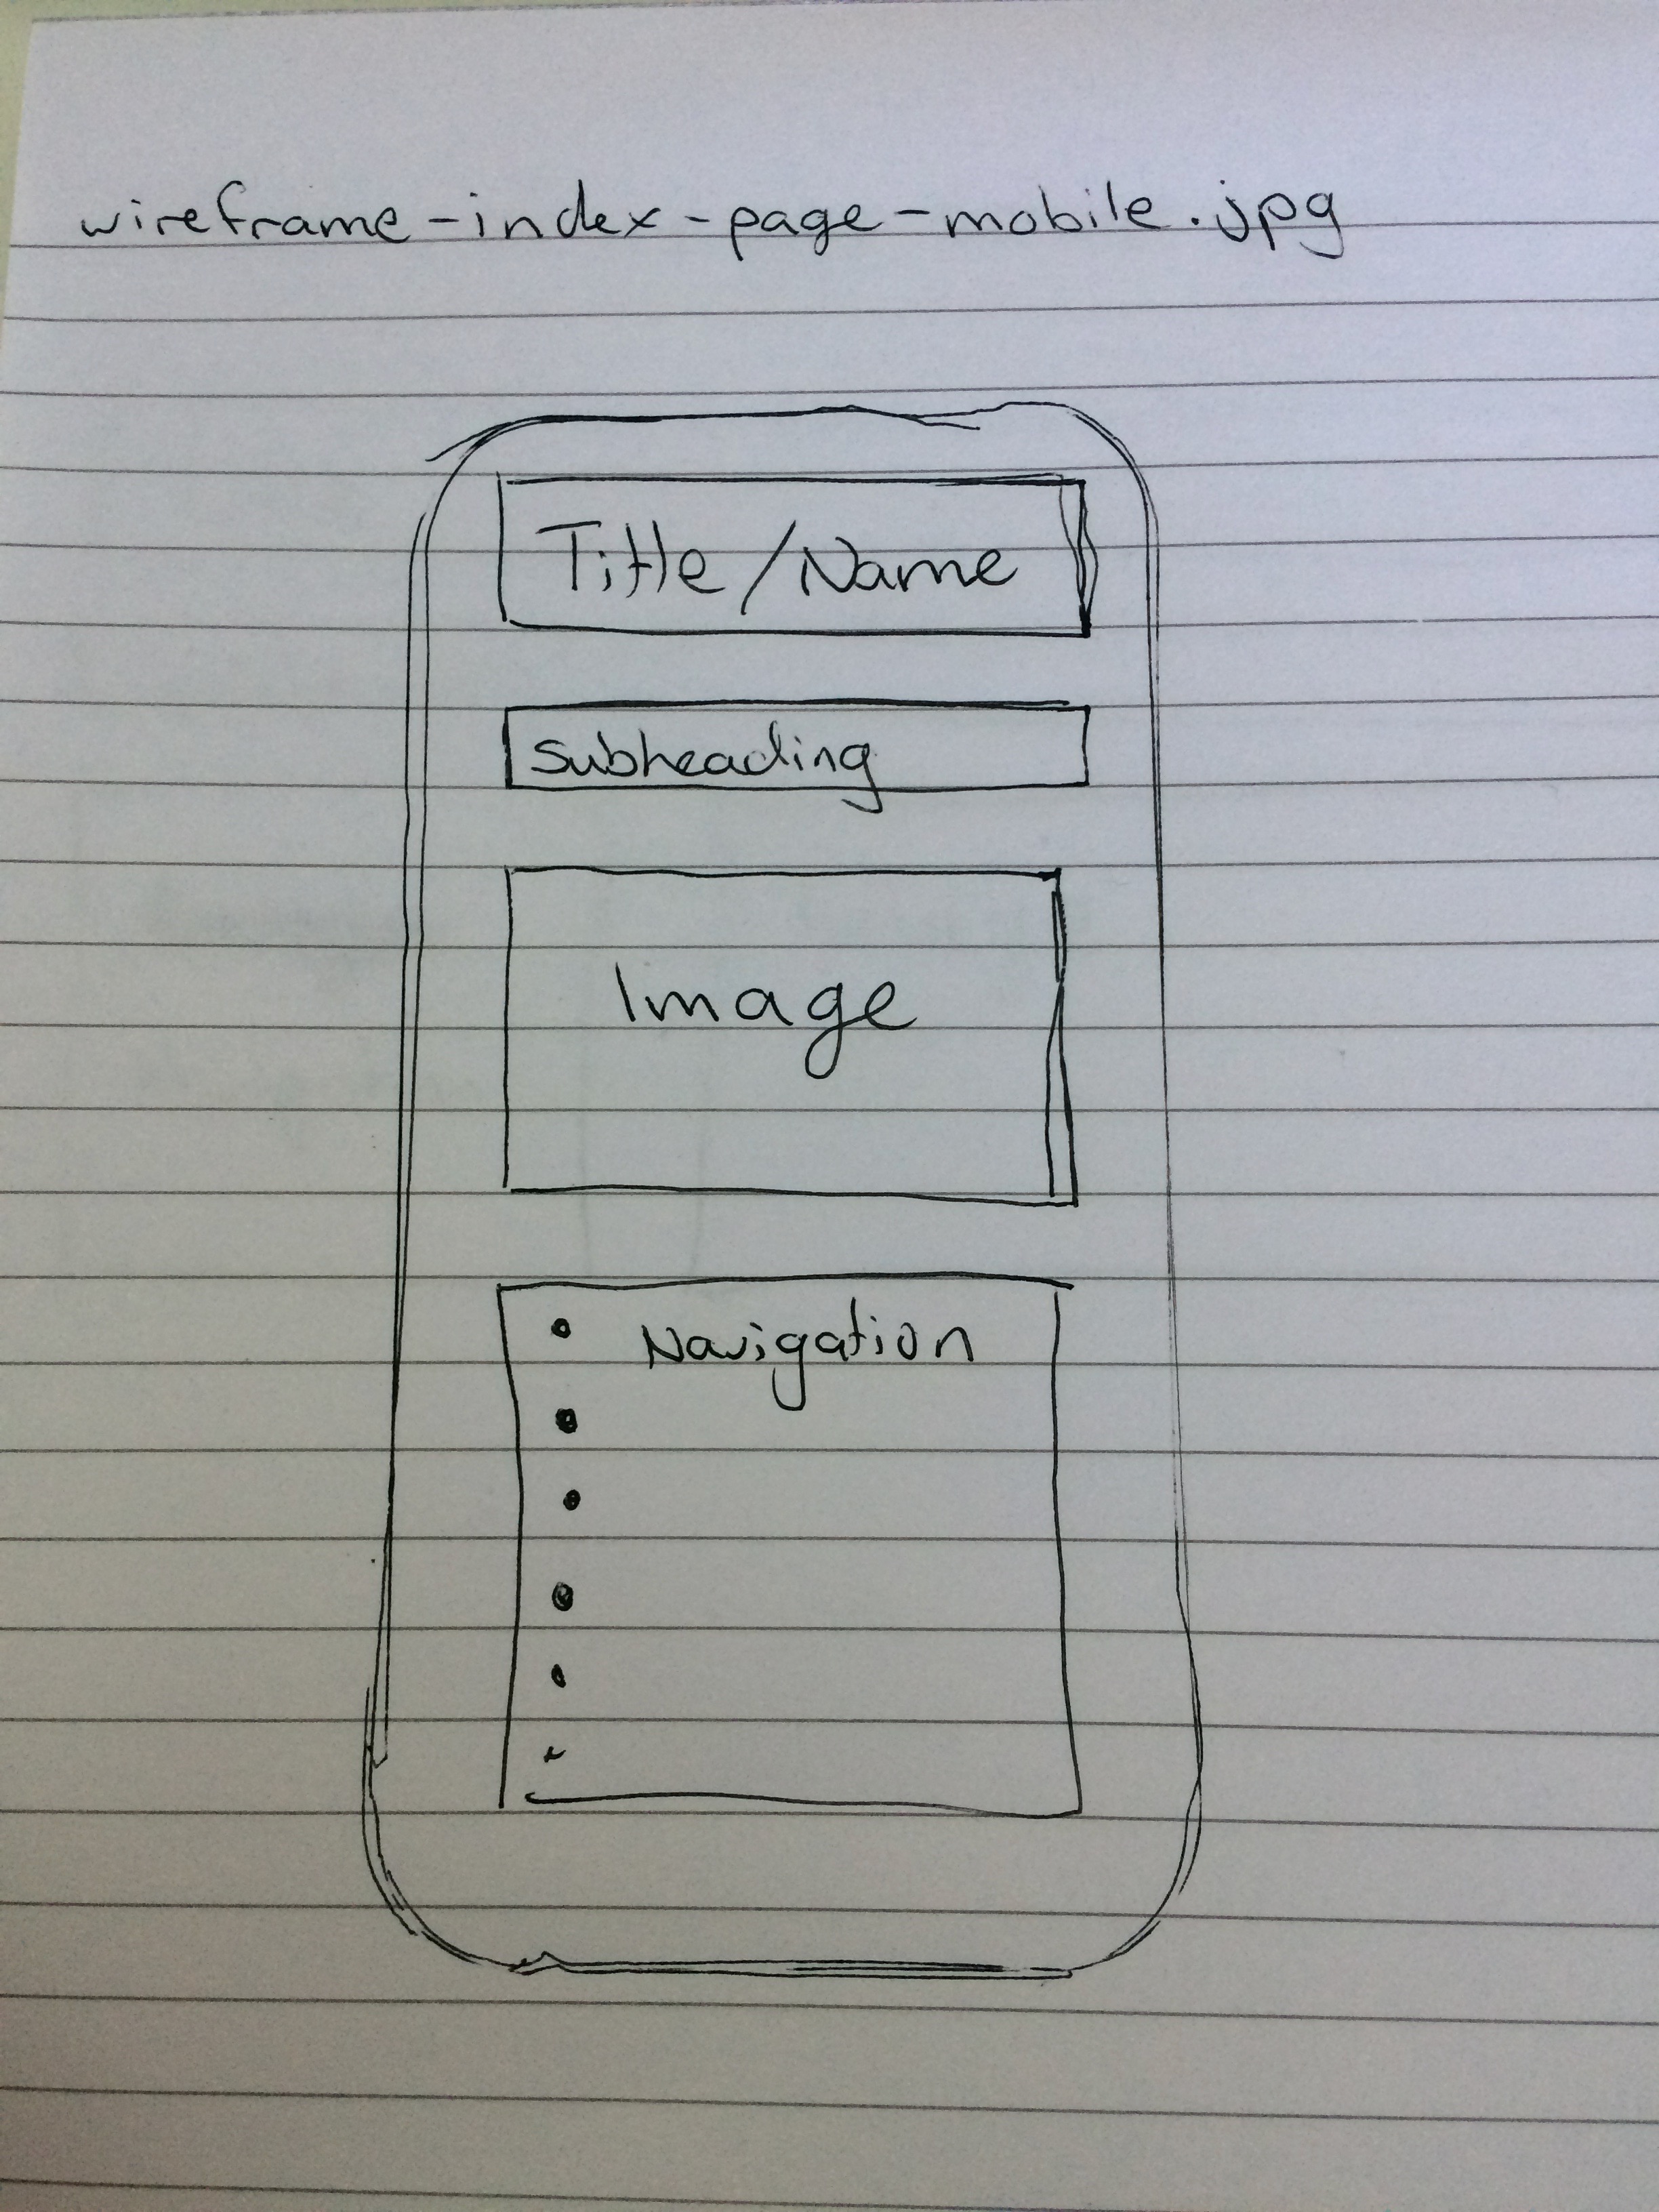 wireframe-index-page-mobile.jpg
Title/Name
Subheading
Image
Navigation